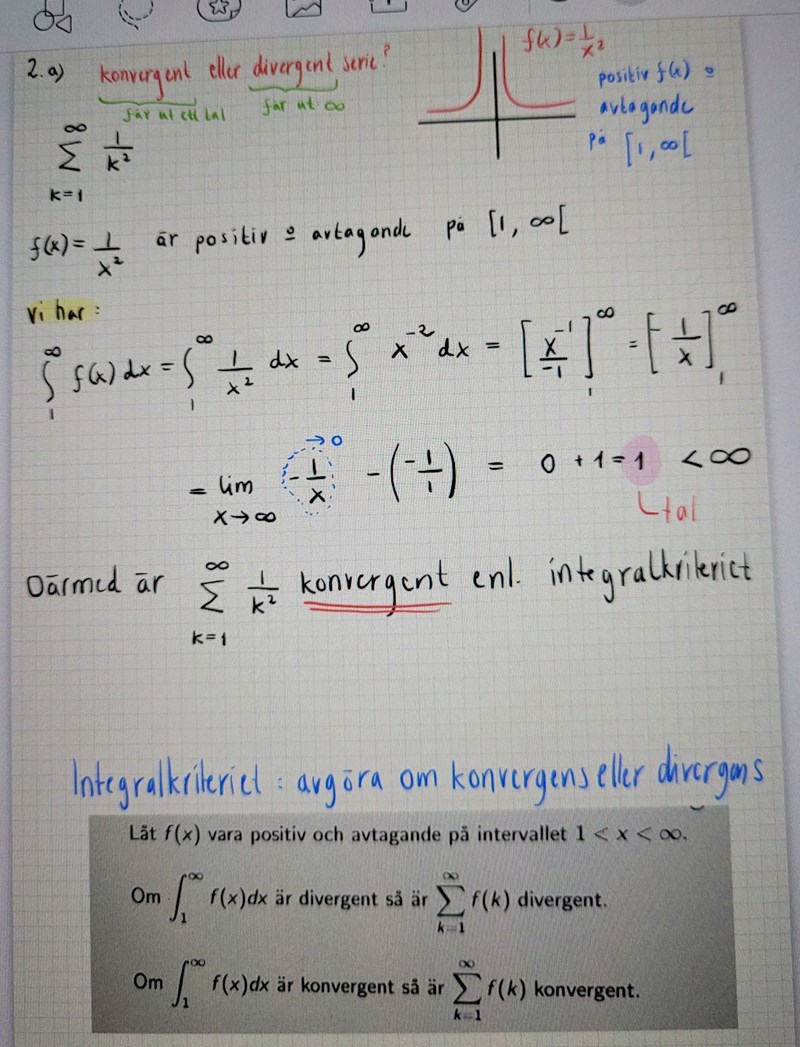 2.a) konvergent eller divergent serie?
får ut ett tal får ut ∞
f(x) = 1/x²
positiv f(x) o
avtagande
på [1, ∞[
∞
∑ 1/k²
k=1
f(x) = 1/x² är positiv o avtagande på [1, ∞[
Vi har:
∫₁^∞ f(x) dx = ∫₁^∞ 1/x² dx = ∫₁^∞ x⁻² dx = [x⁻¹/-1]₁^∞ = [-1/x]₁^∞
→ 0
= lim x→∞ -1/x - (-1/1) = 0 + 1 = 1 < ∞
tal
Därmed är ∑ k=1 ∞ 1/k² konvergent enl. integralkriteriet
Integralkriteriet : avgöra om konvergens eller divergens
Låt f(x) vara positiv och avtagande på intervallet 1 < x < ∞.
Om ∫₁^∞ f(x)dx är divergent så är ∑ k=1 ∞ f(k) divergent.
Om ∫₁^∞ f(x)dx är konvergent så är ∑ k=1 ∞ f(k) konvergent.